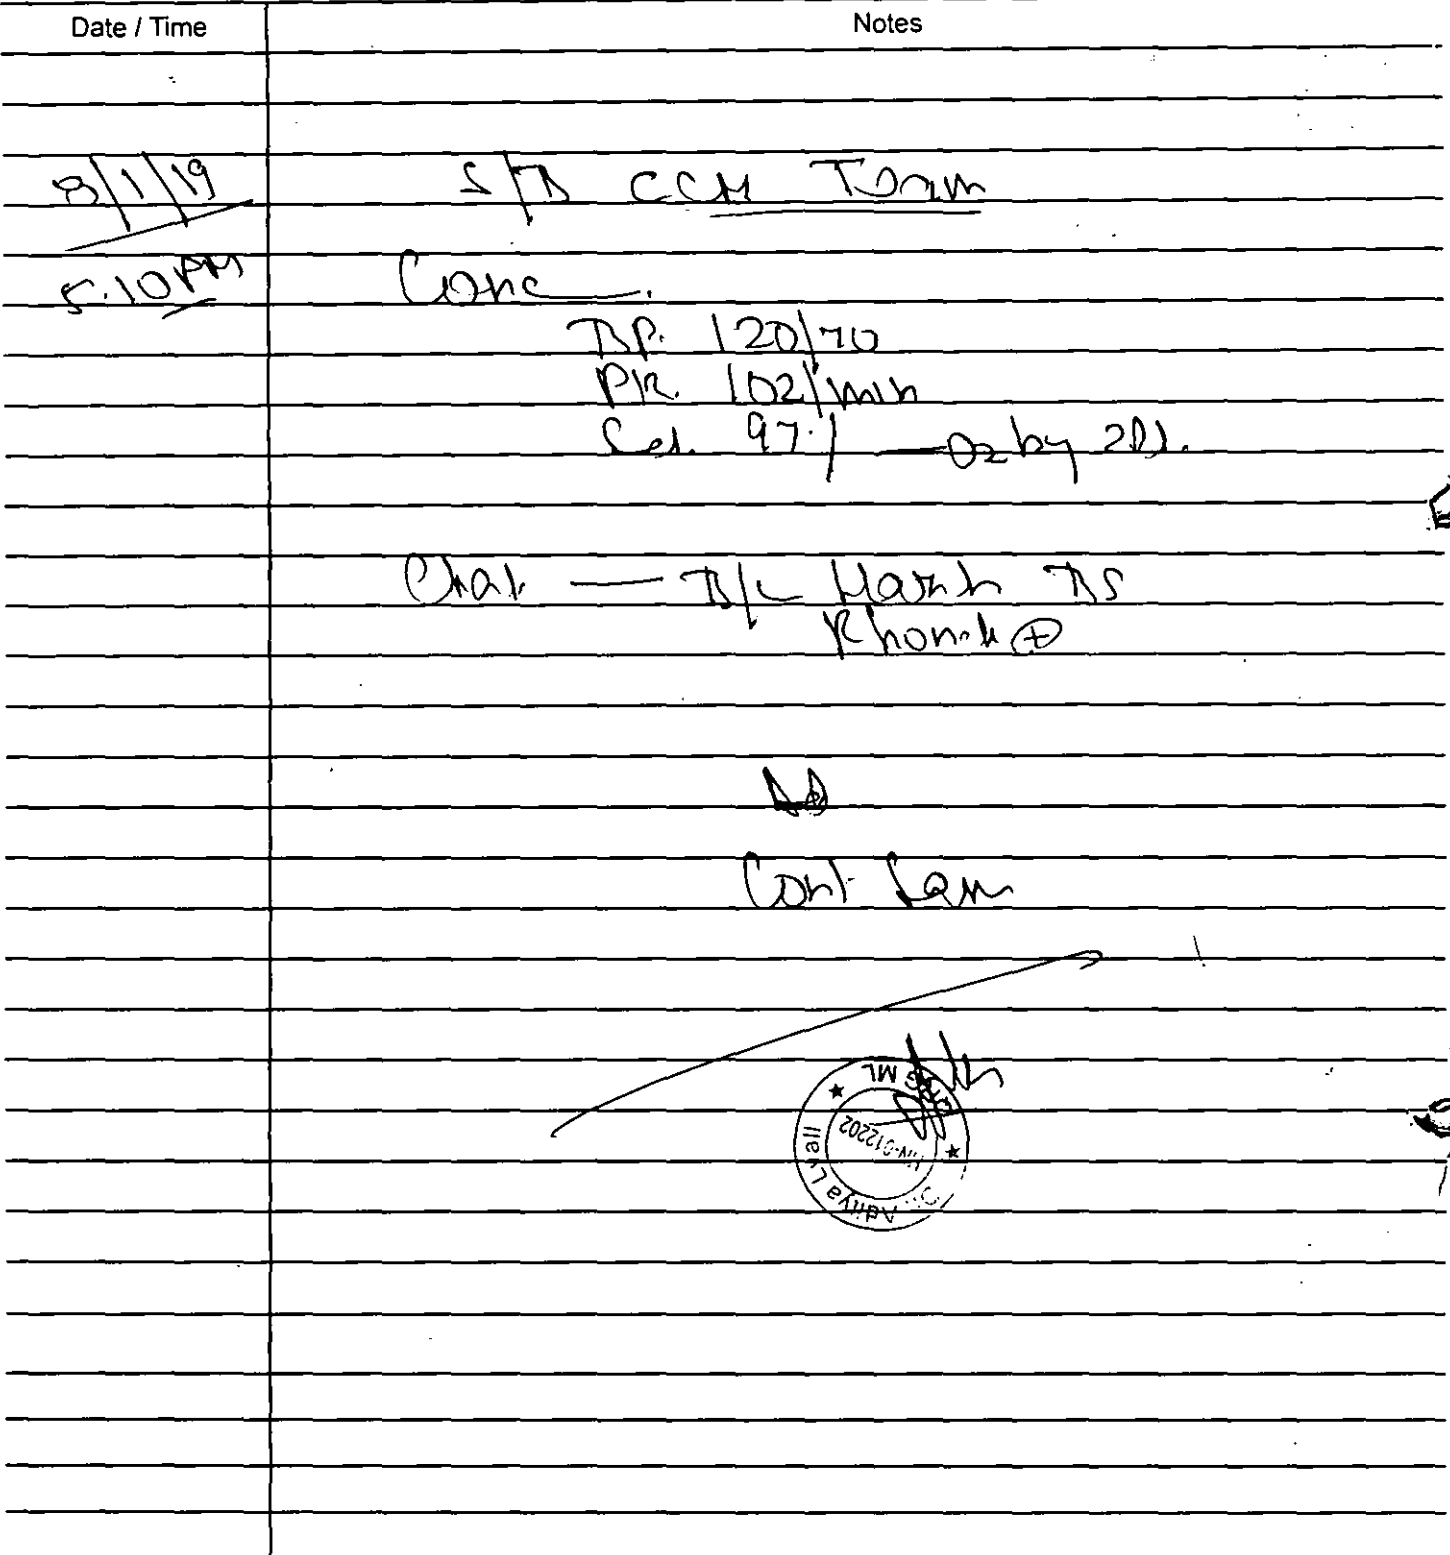 Date / Time Notes
8/1/19 S/B CCM Team
5.10 PM Conc
BP. 120/70
PR. 102/min
Sat. 97% — O2 by 2Dl.
Chest — B/L Harsh BS
Rhonchi ⊕
Adv
Cont Same
Dr. Aditya Lyall
ML
012202